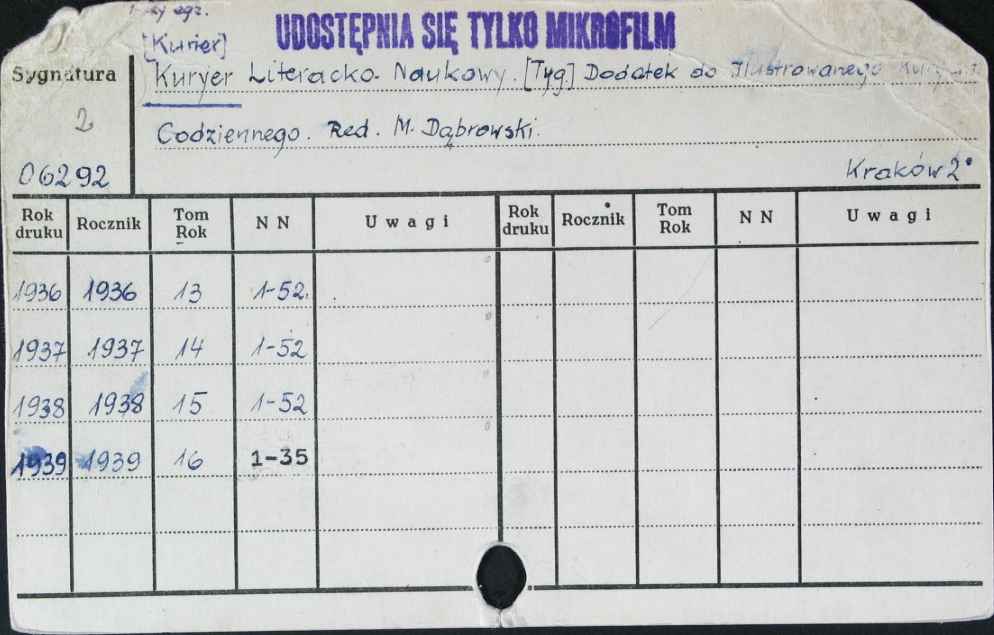 egz.
UDOSTĘPNIA SIĘ TYLKO MIKROFILM
[Kurier]
Sygnatura
Kuryer Literacko-Naukowy. [Tyg] Dodatek do Ilustrowanego
2
Codziennego. Red. M. Dąbrowski.
06292
Kraków 2°
Rok druku Rocznik Tom Rok NN Uwagi Rok druku Rocznik Tom Rok NN Uwagi
1936 1936 13 1-52.
1937 1937 14 1-52
1938 1938 15 1-52
1939 1939 16 1-35